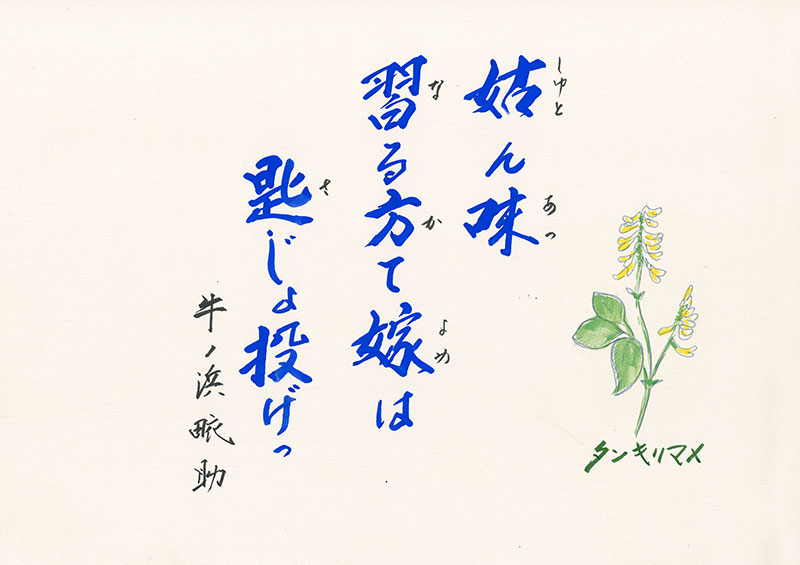 姑ん味
しゅと
あっ
習る方て嫁は
な
かよめ
匙じょ投げっ
さ
牛ノ浜畩助
タンキリマメ